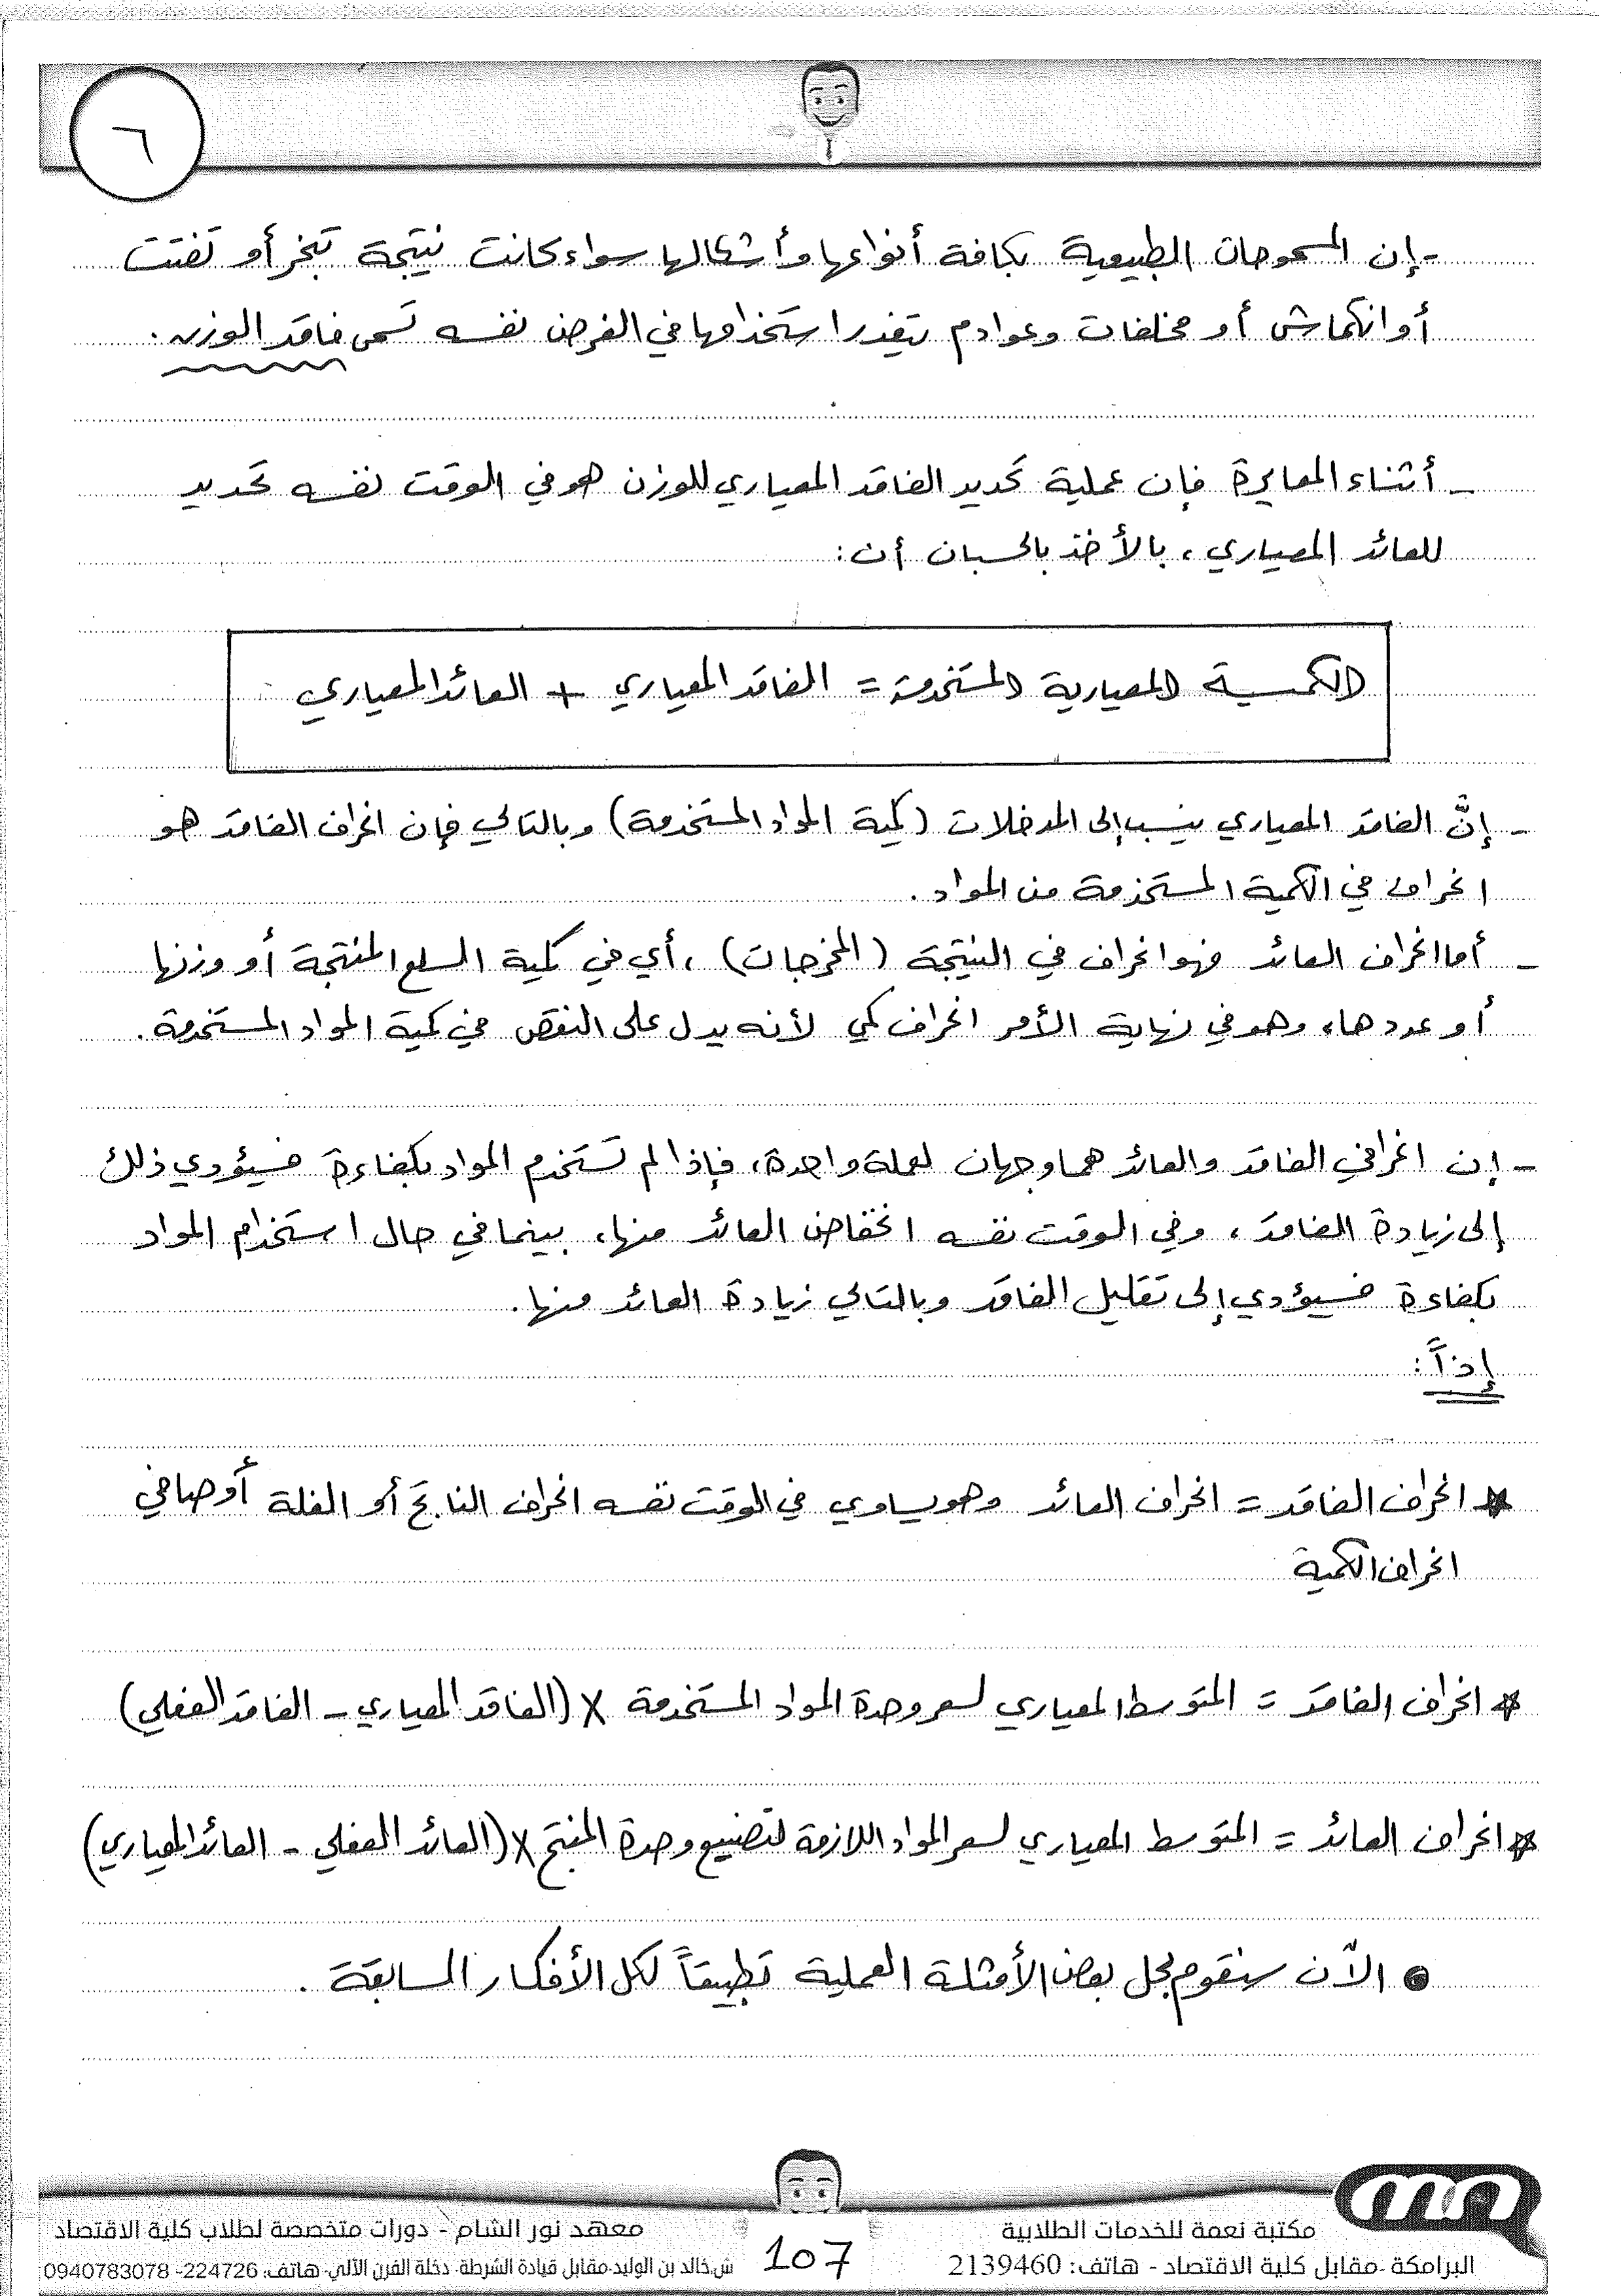 ٦
- إن المسموحات الطبيعية بكافة أنواعها وأشكالها سواء كانت نتيجة تبخر أو تفتت
أو انكماش أو مخلفات وعوادم يتعذر استخدامها في الغرض نفسه تسمى فاقد الوزن.
- أثناء المعايرة فإن عملية تحديد الفاقد المعياري للوزن هو في الوقت نفسه تحديد
للعائد المعياري، بالأخذ بالحسبان أن:
الكمية المعيارية المستخدمة = الفاقد المعياري + العائد المعياري
- إنّ الفاقد المعياري ينسب إلى المدخلات (كمية المواد المستخدمة) وبالتالي فإن انحراف الفاقد هو
انحراف في الكمية المستخدمة من المواد.
- أما انحراف العائد فهو انحراف في النتيجة (المخرجات)، أي في كمية السلع المنتجة أو وزنها
أو عددها، وهو في نهاية الأمر انحراف كمي لأنه يدل على النقص في كمية المواد المستخدمة.
- إن انحرافي الفاقد والعائد هما وجهان لعملة واحدة، فإذا لم تستخدم المواد بكفاءة فسيؤدي ذلك
إلى زيادة الفاقد، وفي الوقت نفسه انخفاض العائد منها، بينما في حال استخدام المواد
بكفاءة فسيؤدي إلى تقليل الفاقد وبالتالي زيادة العائد منها.
إذاً:
* انحراف الفاقد = انحراف العائد وهو يساوي في الوقت نفسه انحراف الناتج أو الغلة أو صافي
انحراف الكمية
* انحراف الفاقد = المتوسط المعياري لسعر وحدة المواد المستخدمة × (الفاقد المعياري - الفاقد الفعلي)
* انحراف العائد = المتوسط المعياري لسعر المواد اللازمة لتصنيع وحدة المنتج × (العائد الفعلي - العائد المعياري)
● الآن سنقوم بحل بعض الأمثلة العملية تطبيقاً لكل الأفكار السابقة.
مكتبة نعمة للخدمات الطلابية
البرامكة - مقابل كلية الاقتصاد - هاتف: 2139460
107
معهد نور الشام - دورات متخصصة لطلاب كلية الاقتصاد
ش.خالد بن الوليد-مقابل قيادة الشرطة- دخلة الفرن الآلي- هاتف: 224726- 0940783078